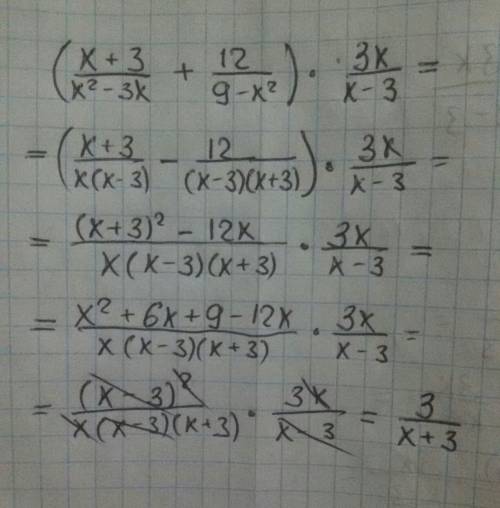 (x + 3 / x² - 3x + 12 / 9 - x²) · 3x / x - 3 =
= (x + 3 / x(x - 3) - 12 / (x - 3)(x + 3)) · 3x / x - 3 =
= (x + 3)² - 12x / x(x - 3)(x + 3) · 3x / x - 3 =
= x² + 6x + 9 - 12x / x(x - 3)(x + 3) · 3x / x - 3 =
= (x - 3)² / x(x - 3)(x + 3) · 3x / x - 3 = 3 / x + 3